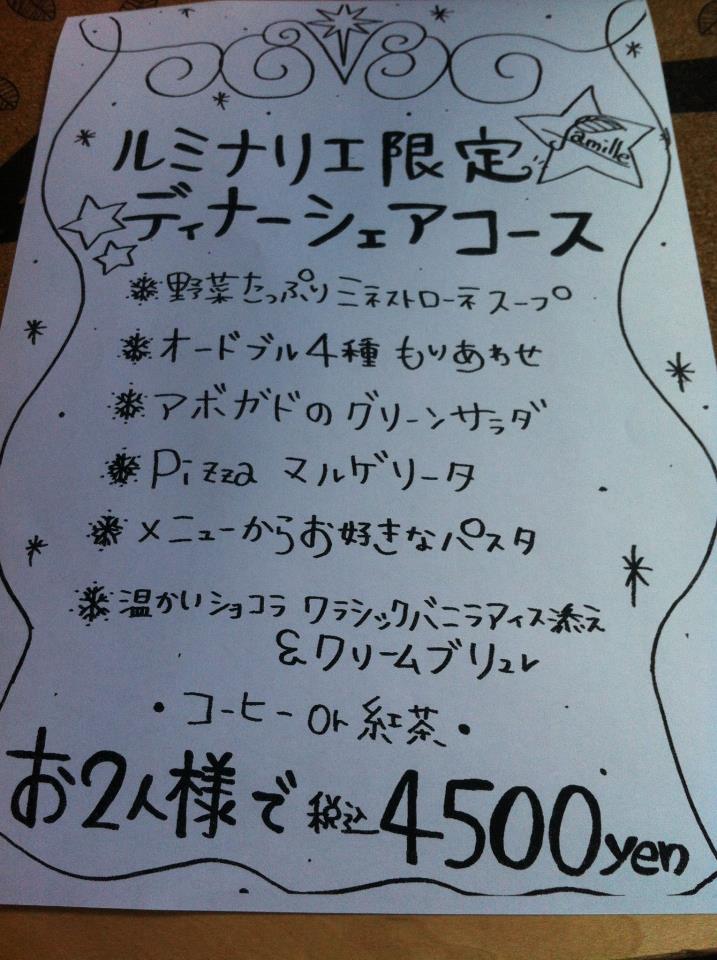 ルミナリエ限定
famille
ディナーシェアコース
野菜たっぷりミネストローネスープ
オードブル4種 もりあわせ
アボガドのグリーンサラダ
Pizza マルゲリータ
メニューからお好きなパスタ
温かいショコラ クラシックバニラアイス添え
&クリームブリュレ
・コーヒーor紅茶・
お2人様で税込4500yen